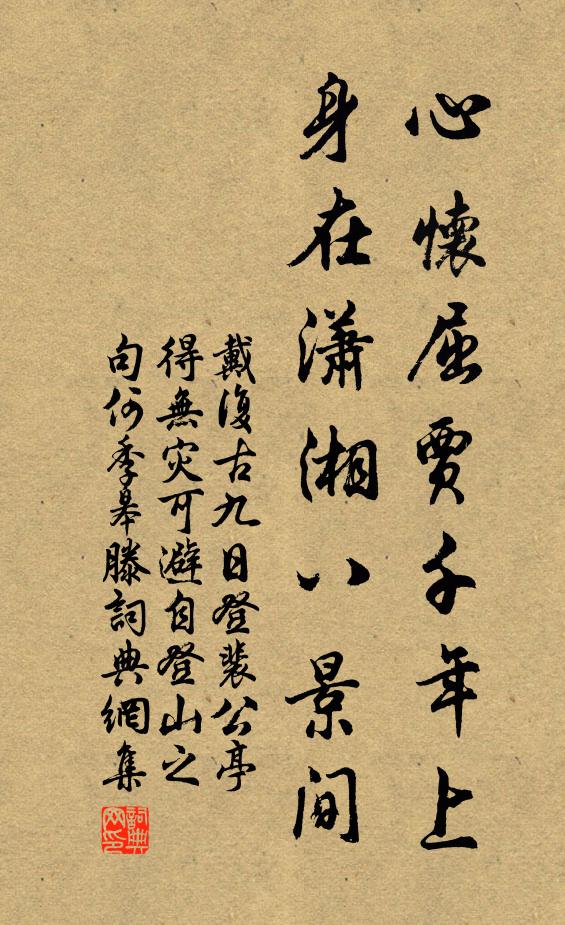 心懷屈賈千年上
身在瀟湘八景間
戴復古九日登裴公亭
得無灾可避自登山之
句何季皋滕詞典網集
詞典网印